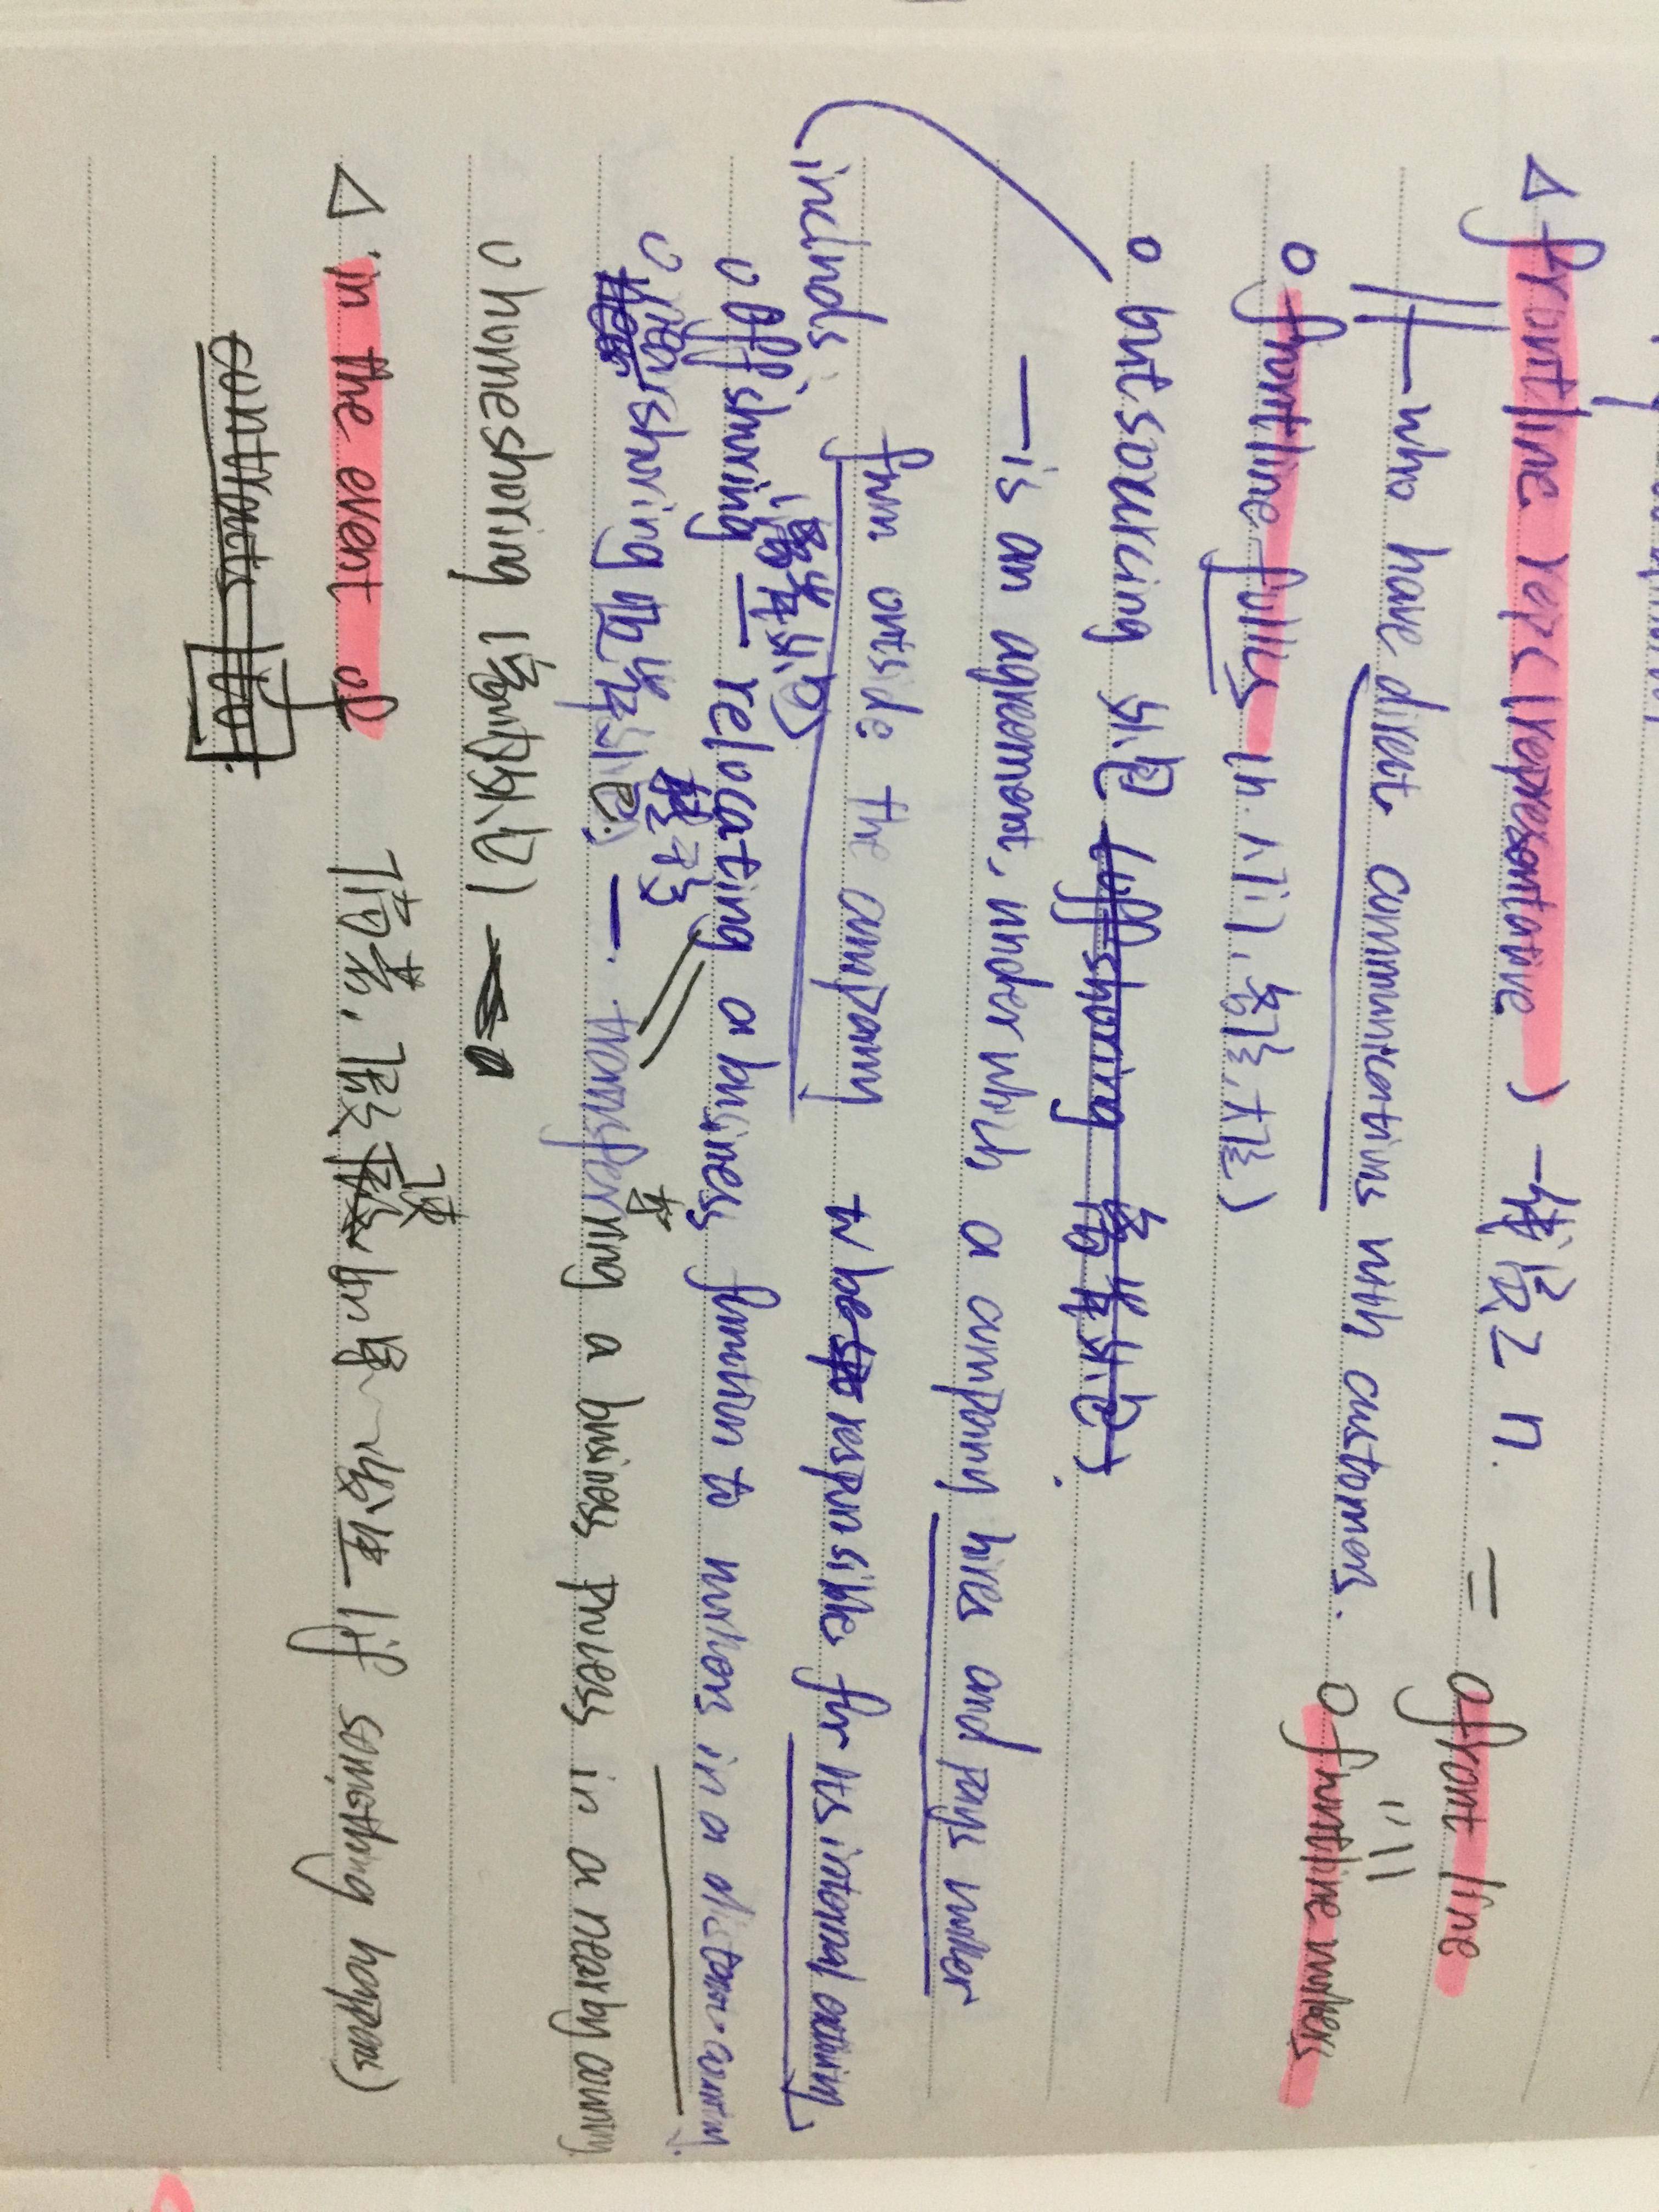 △ frontline rep (representative) - 一线员工 n. = o front line
— who have direct communications with customers. o frontline workers
o frontline folks (n. 人们, 亲属, 大伙)
o outsourcing 外包
— is an agreement, under which a company hires and pays another
from outside the company to be responsible for its
includs:
离岸外包
o offshoring — relocating a business function to workers in a distant country.
o nearshoring 近岸外包 — transferring a business process in a nearby country
o homeshoring (境内外包)
△ in the event of 倘若, 假设 (if something happens)